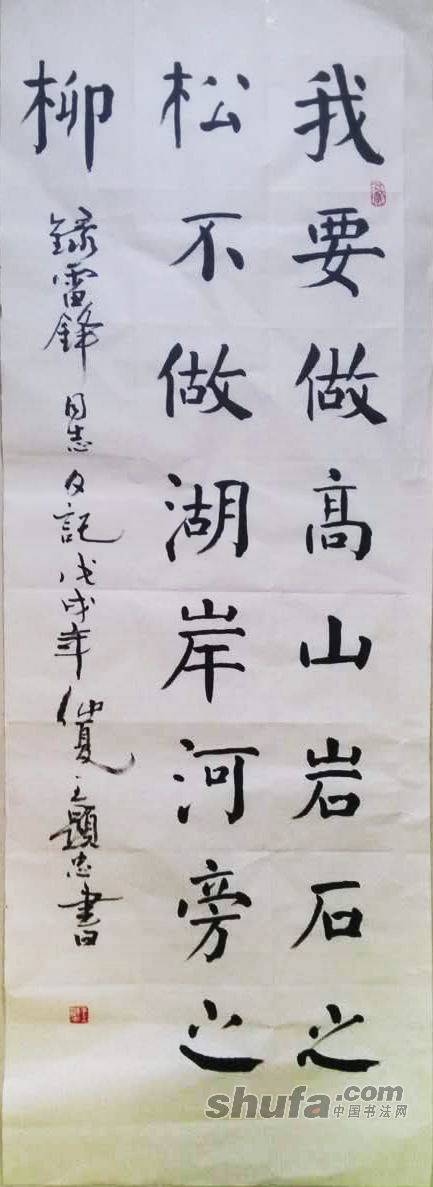 我要做高山岩石之
松不做湖岸河旁之
柳
録雷鋒同志日記戊戌年仲夏王顕忠書
shufa.com
中国书法网